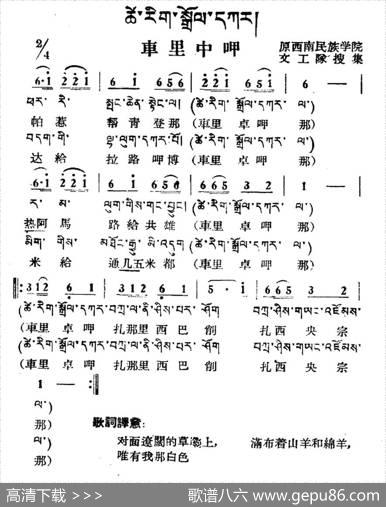 ཚེ་རིག་སྒྲོལ་དཀར།
車里中呷
2/4
原西南民族学院
文工隊搜集
6·1 2 2 1 6 1 6 5 6 2 2 1 6 5 1 6 —
ཕར་རི་ སྤང་ཆེན་སྟེང་ལ། (ཚེ་རིག་སྒྲོལ་དཀར་ ལ་)
帕惹 帮青登那 (車里卓呷 那)
བདག་གི་ ལྷ་ལུག་དཀར་པོ། (ཚེ་རིག་སྒྲོལ་དཀར་ ལ་)
达給 拉路呷博 (車里卓呷 那)
6·1 2 2 1 6 1 6 5 6 6 6 5 3 2 1 —
ར་མ་ ལུག་གིས་གང་བྱུང། (ཚེ་རིག་སྒྲོལ་དཀར་ ལ་)
热阿馬 路給共雄 (車里卓呷 那)
མིག་གིས་ མཐོང་རྒྱུ་མི་འདུག (ཚེ་རིག་སྒྲོལ་དཀར་ ལ་)
米給 通几五米都 (車里卓呷 那)
3 1 2 6·1 3 1 2 6 1 5 · 1 6 6 5 3 2
(ཚེ་རིག་སྒྲོལ་དཀར་བཀྲ་ལ་ནི་ཤིས་པར་ཤོག བཀྲ་ཤིས་གཡང་འཛོམས་
(車里卓呷 扎那里西巴削 扎西央宗
(ཚེ་རིག་སྒྲོལ་དཀར་བཀྲ་ལ་ནི་ཤིས་པར་ཤོག བཀྲ་ཤིས་གཡང་འཛོམས་
(車里卓呷 扎那里西巴削 扎西央宗
1 —
ལ་)
那)
ལ་)
那)
歌詞譯意:
对面遼闊的草灘上, 滿布着山羊和綿羊,
唯有我那白色
高清下载 >>> 歌谱八六 www.gepu86.com